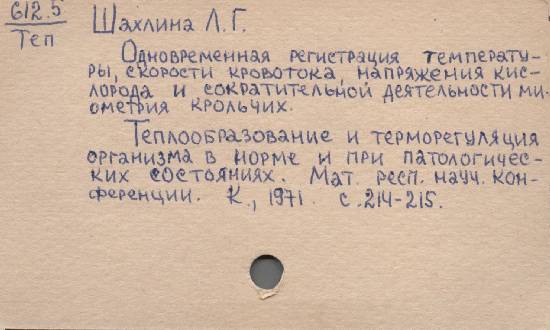 612.5
Теп
Шахлина Л. Г.
Одновременная регистрация температу-
ры, скорости кровотока, напряжения кис-
лорода и сократительной деятельности ми-
ометрия крольчих.
Теплообразование и терморегуляция
организма в норме и при патологичес-
ких состояниях. Мат. респ. науч. кон-
ференции. К., 1971. с. 214-215.